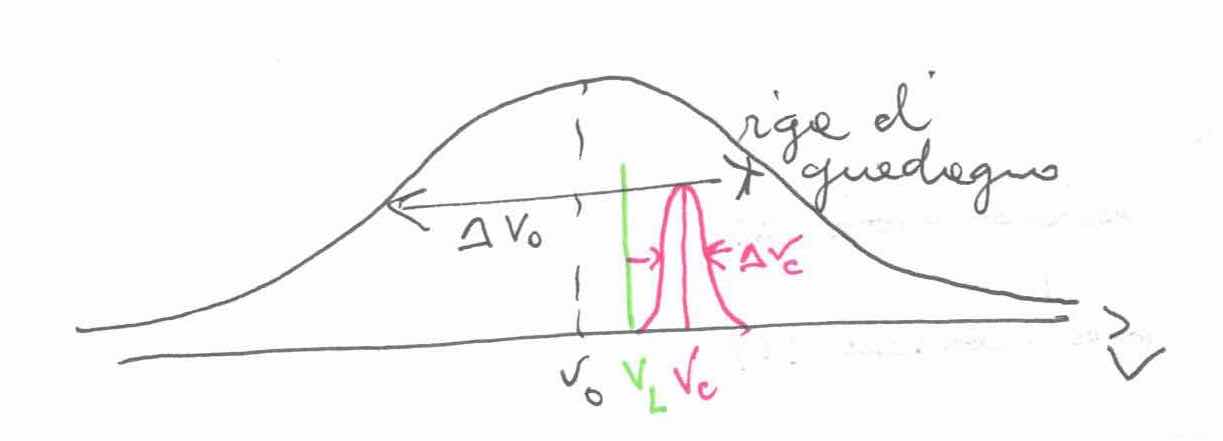 riga di
guadagno
Δν₀
Δν_c
ν₀ ν_L ν_c
ν